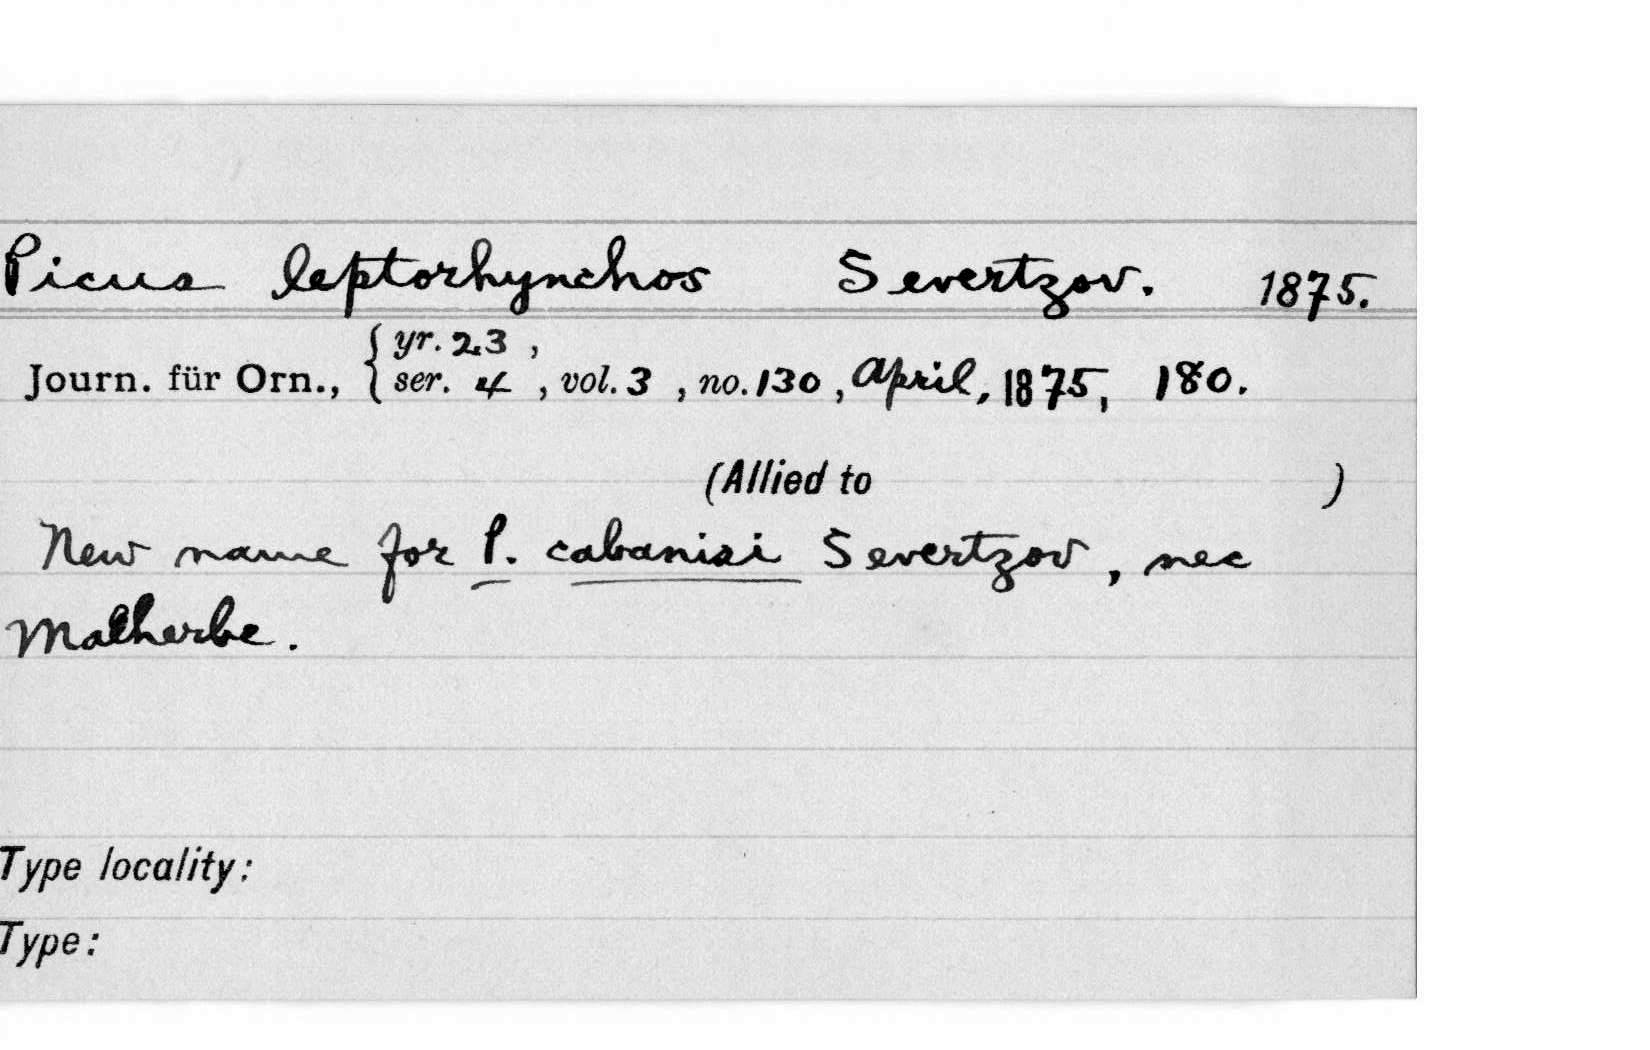 Picus leptorhynchos Severtzov. 1875.
yr. 23 ,
Journ. für Orn., { ser. 4 , vol. 3 , no. 130 , April, 1875, 180.
(Allied to )
New name for P. cabanisi Severtzov, nec
Malherbe.
Type locality:
Type: